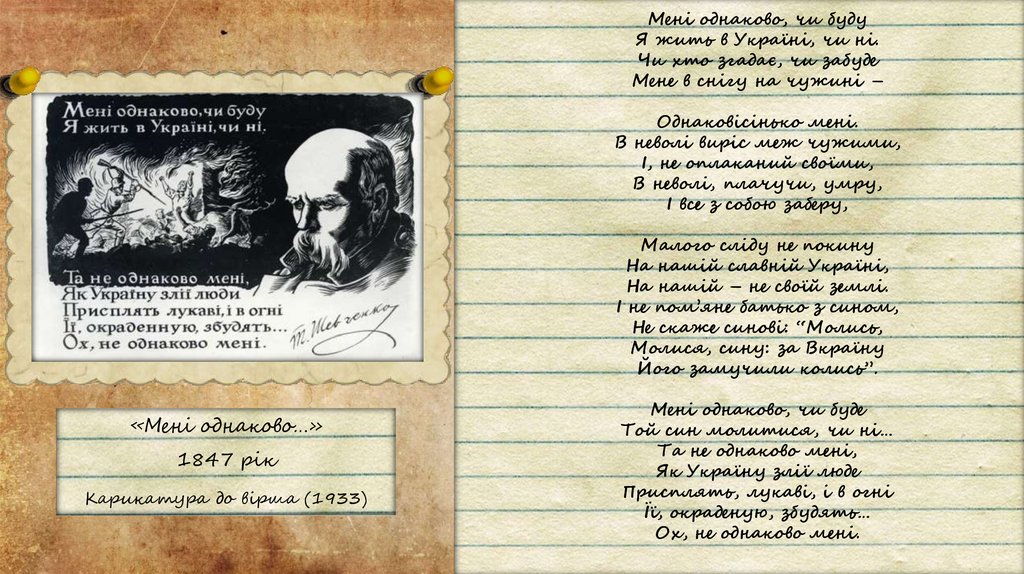 Мені однаково, чи буду
Я жить в Україні, чи ні.
Та не однаково мені,
Як Україну злії люди
Присплять лукаві, і в огні
Її, окраденную, збудять...
Ох, не однаково мені.
Т. Шевченко
«Мені однаково...»
1847 рік
Карикатура до вірша (1933)
Мені однаково, чи буду
Я жить в Україні, чи ні.
Чи хто згадає, чи забуде
Мене в снігу на чужині –
Однаковісінько мені.
В неволі виріс меж чужими,
І, не оплаканий своїми,
В неволі, плачучи, умру,
І все з собою заберу,
Малого сліду не покину
На нашій славній Україні,
На нашій – не своїй землі.
І не пом'яне батько з сином,
Не скаже синові: “Молись,
Молися, сину: за Вкраїну
Його замучили колись”.
Мені однаково, чи буде
Той син молитися, чи ні...
Та не однаково мені,
Як Україну злії люде
Присплять, лукаві, і в огні
Її, окраденую, збудять...
Ох, не однаково мені.